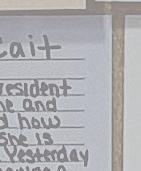 Cait
resident
he and
d how
She is
Yesterday